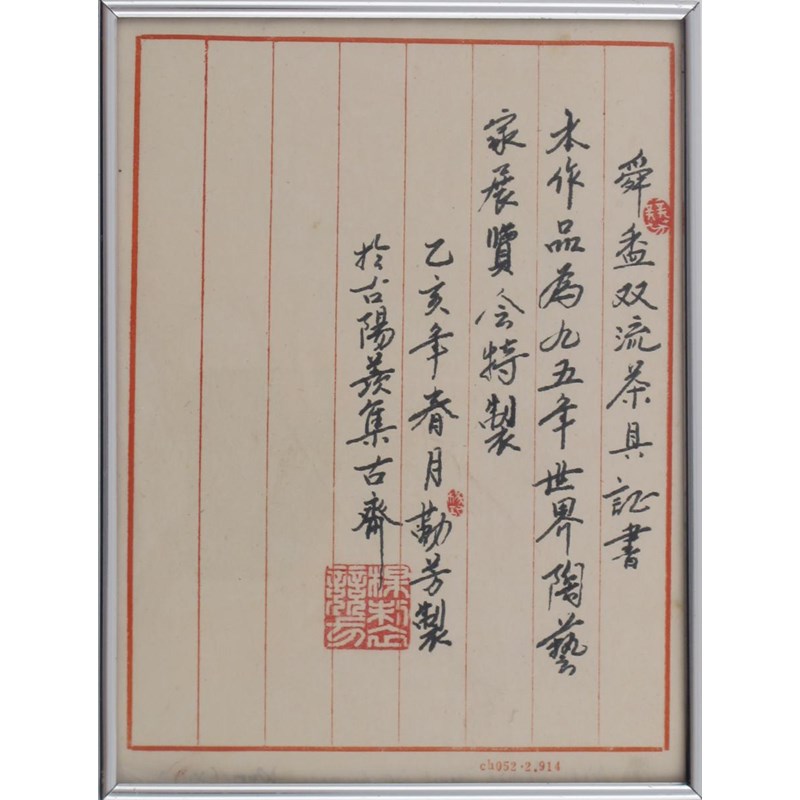 舜盉双流茶具証書
本作品為九五年世界陶藝
家展覽会特製
乙亥年春月勤芳製
於古陽羨集古齋
ch052·2.914